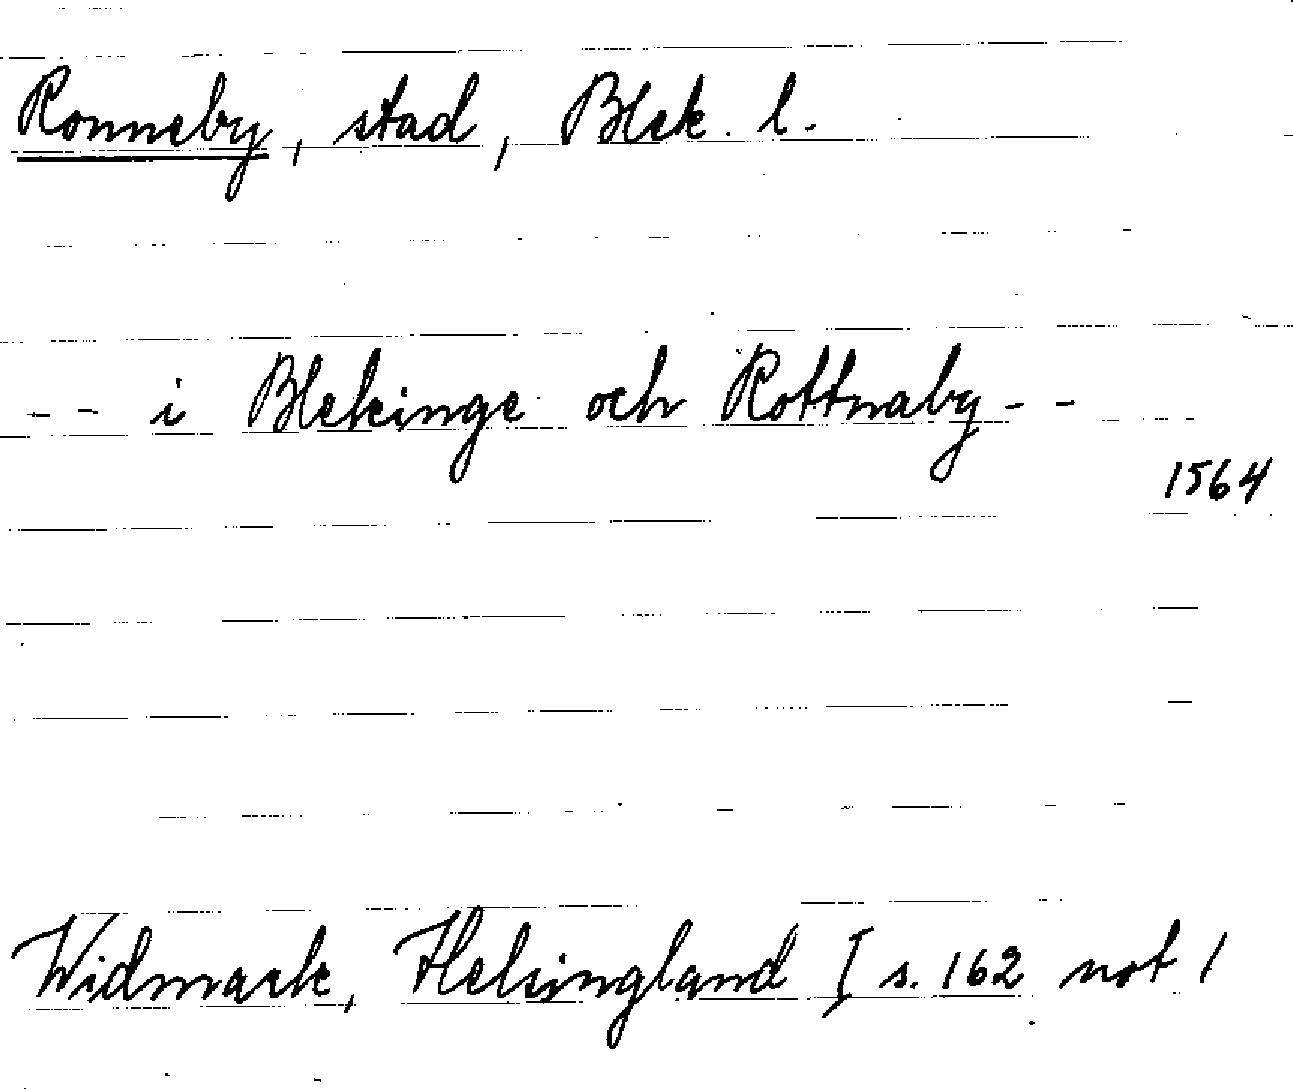 Ronneby, stad, Blek. l.
-- i Blekinge och Rottnaby --
1564
Widmark, Helsingland I s. 162 not 1